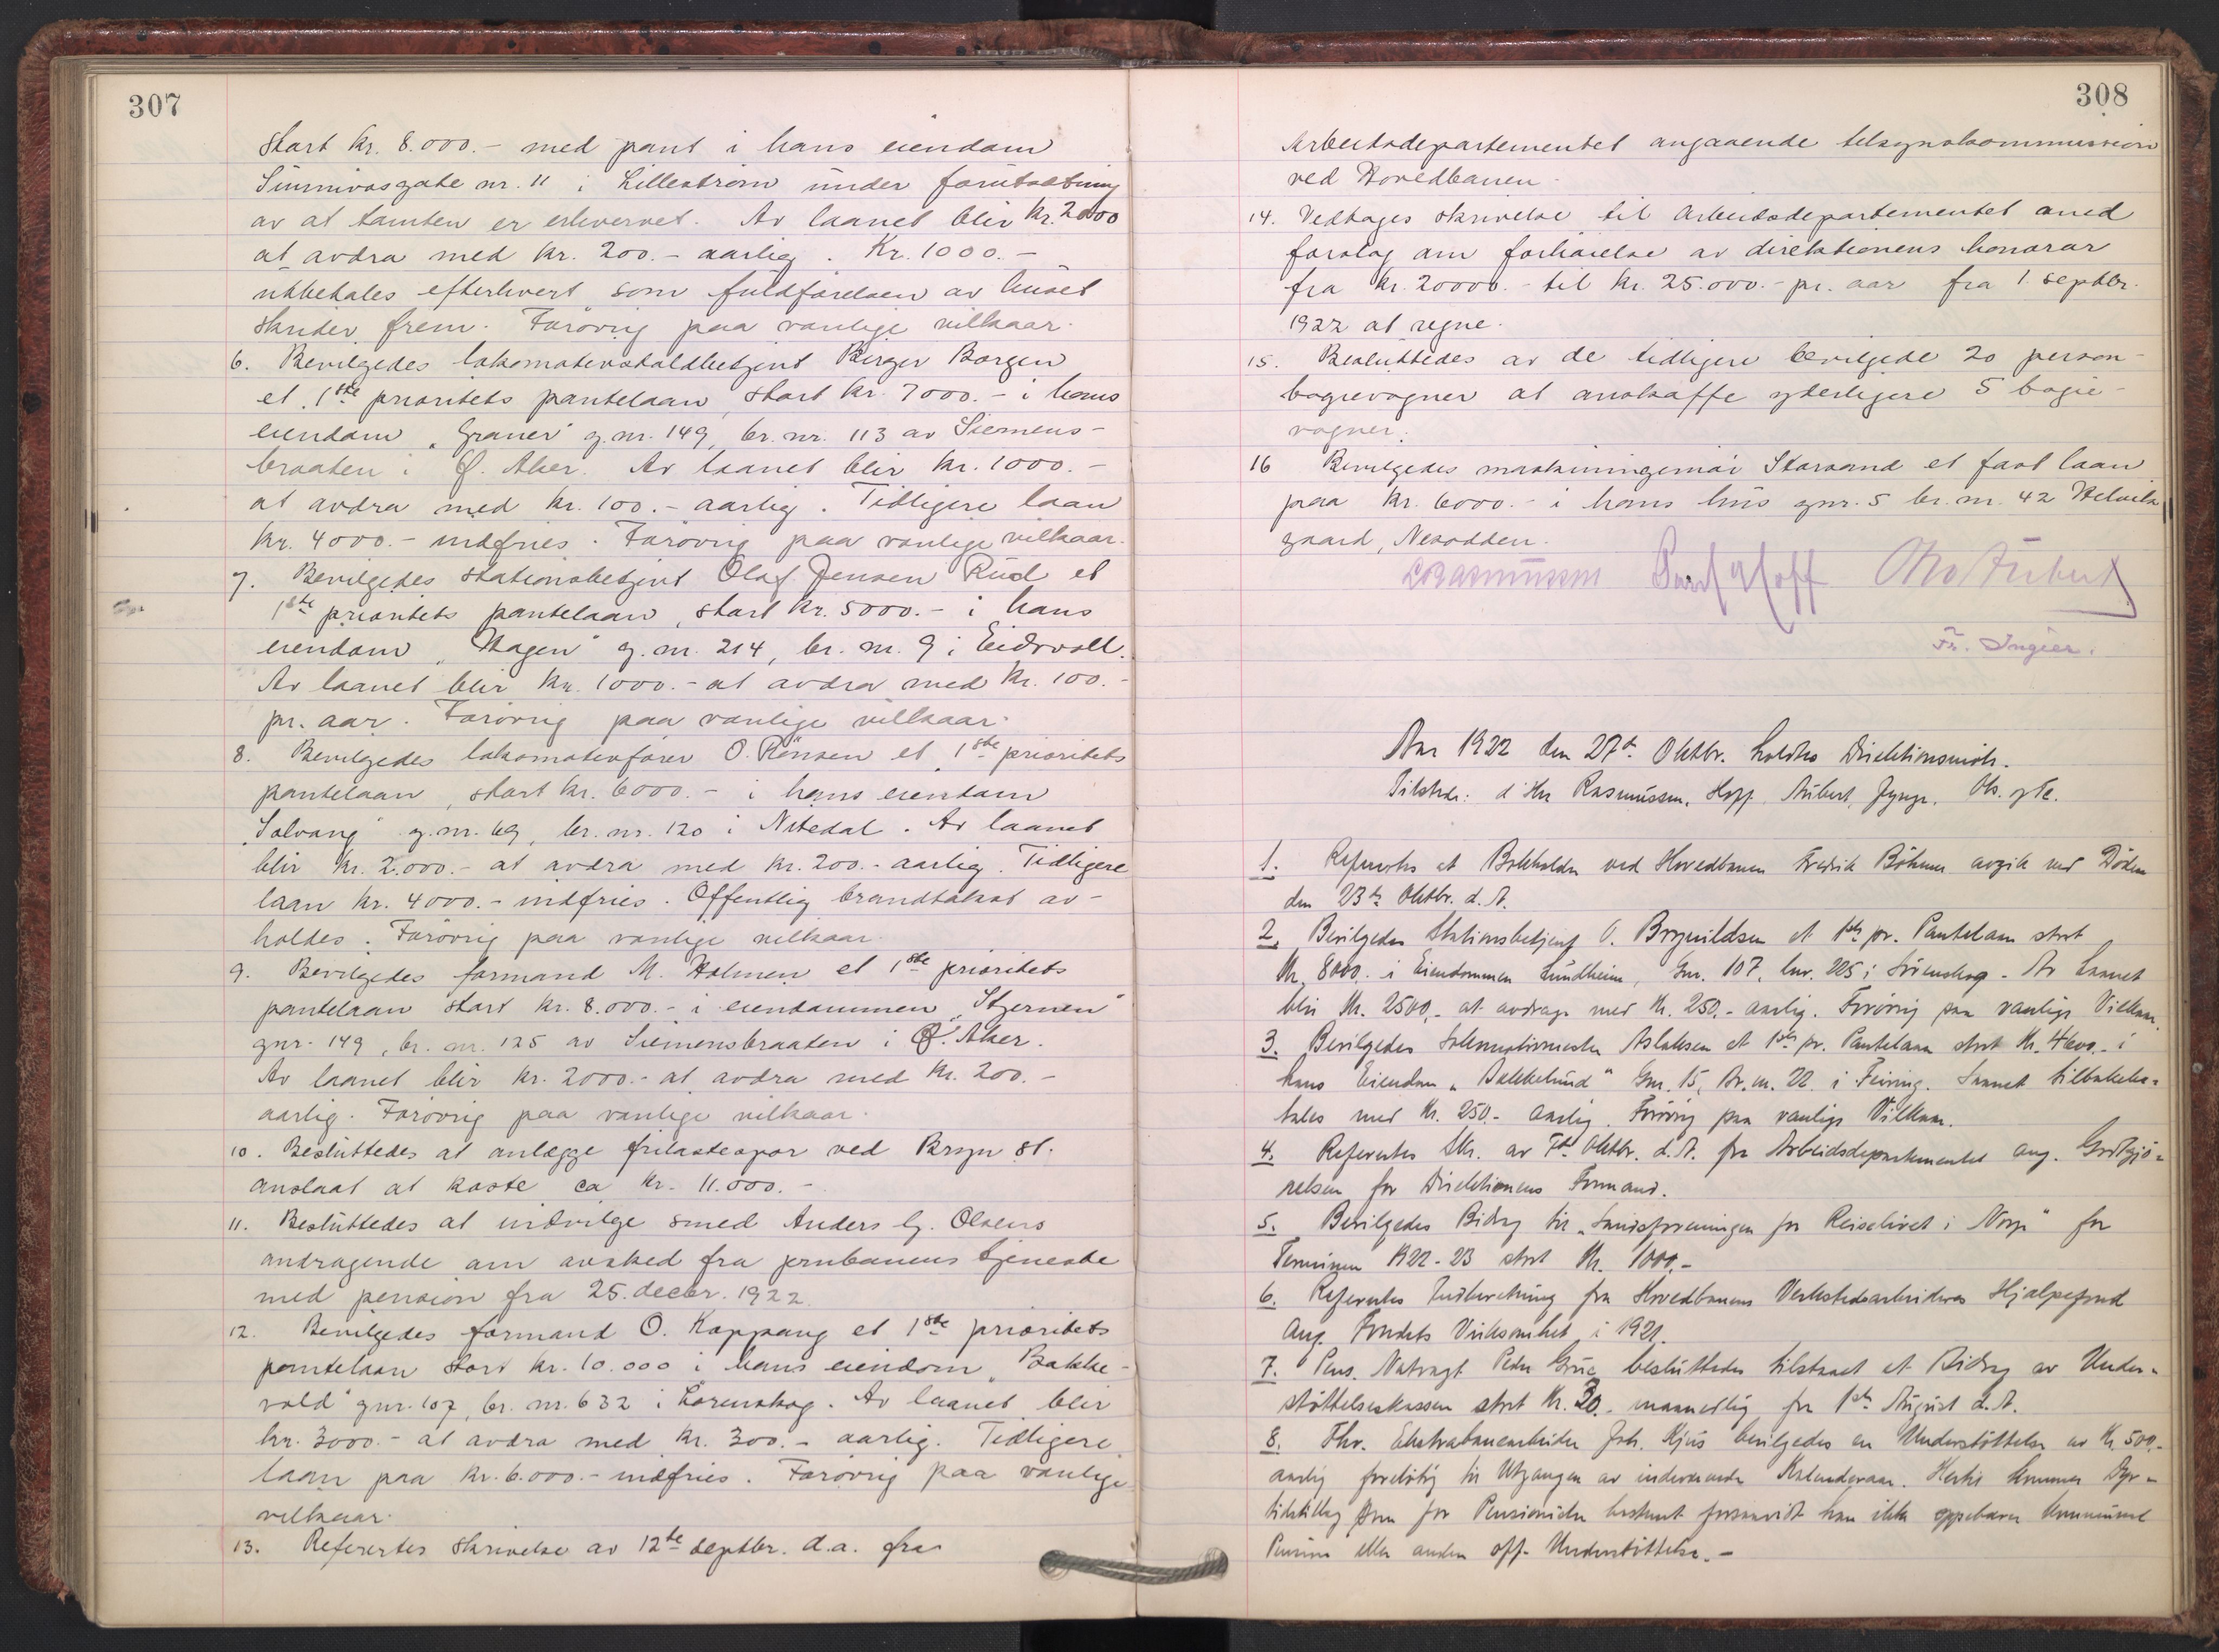 307
stort kr. 8.000.- med pant i hans eiendom
Sünnivasgate nr. 11 i Lillestrøm ünder forütsætning
av at tomten er erhvervet. Av laanet blir kr. 2000
at avdra med kr. 200.- aarlig. Kr. 1000.-
ütbetales efterhvert som füldførelsen av hüset
skrider frem. Forøvrig paa vanlige vilkaar.
6. Bevilgedes lokomotivstaldbetjent Birger Borgen
et 1ste prioritets pantelaan, stort kr. 7000.- i hans
eiendom "Graner" g.nr. 149, br. nr. 113 av Siemens-
braaten i Ø. Aker. Av laanet blir kr. 1000.-
at avdra med kr. 100.- aarlig. Tidligere laan
kr. 4000.- indfries. Forøvrig paa vanlige vilkaar.
7. Bevilgedes stationsbetjent Olaf Jensen Rüd et
1ste prioritets pantelaan, stort kr. 5000.- i hans
eiendom "Hagen" g.nr. 214, br. nr. 9 i Eidsvoll.
Av laanet blir kr. 1000.- at avdra med kr. 100.-
pr. aar. Forøvrig paa vanlige vilkaar.
8. Bevilgedes lokomotivfører O. Rønsen et 1ste prioritets
pantelaan, stort kr. 6000.- i hans eiendom
"Solvang" g.nr. 69, br. nr. 120 i Nitedal. Av laanet
blir kr. 2.000.- at avdra med kr. 200.- aarlig. Tidligere
laan kr. 4000.- indfries. Offentlig brandtakst av-
holdes. Forøvrig paa vanlige vilkaar.
9. Bevilgedes formand M. Holmen et 1ste prioritets
pantelaan stort kr. 8.000.- i eiendommen "Stjernen"
gnr. 149, br. nr. 125 av Siemensbraaten i Ø. Aker.
Av laanet blir kr. 2000.- at avdra med kr. 200.-
aarlig. Forøvrig paa vanlige vilkaar.
10. Beslüttedes at anlægge frilastespor ved Bryn st.
anslaat at koste ca kr. 11.000.-
11. Beslüttedes at indvilge smed Anders G. Olsens
andragende om avsked fra jernbanens tjeneste
med pension fra 25. decbr. 1922.
12. Bevilgedes formand O. Koppang et 1ste prioritets
pantelaan stort kr. 10.000 i hans eiendom "Bakke-
vold" gnr. 107, br. nr. 632 i Lørenskog. Av laanet blir
kr. 3000.- at avdra med kr. 300.- aarlig. Tidligere
laan paa kr. 6.000.- indfries. Forøvrig paa vanlige
vilkaar.
13. Refererter skrivelse av 12te septbr. d.a. fra
308
Arbeidsdepartementet angaaende tilsynskommission
ved Hovedbanen.
14. Vedtages skrivelse til Arbeidsdepartementet med
forslag om forhøielse av direktionens honorar
fra kr. 20000.- til kr. 25.000.- pr. aar fra 1. septbr.
1922 at regne.
15. Beslüttedes av de tidligere bevilgede 20 person-
bogievogner at anskaffe yderligere 5 bogie-
vogner.
16 Bevilgedes maskiningeniør Storsand et fast laan
paa kr. 6000.- i hans hüs gnr. 5 br. nr. 42 Helvik
gaard, Nesodden.
Rasmüssen Hoff Otto Aübert
Fr. Ingier.
Aar 1922 den 27de Oktbr. holdtes Direktionsmøte.
Tilstede: d'Hrr Rasmüssen, Hoff, Aübert,
1. Refereretes at Bokholder ved Hovedbanen Fredrik Böhmer avgik ved Döden
den 23de Oktbr. d. A.
2. Bevilgedes Stationsbetjent O. Brynildsen et 1ste pr. Pantelaan stort
Kr. 8000.- i Eiendommen Lündheim, Gnr. 107, bnr. 225 i Lörenskog. Av Laanet
blir Kr. 2500.- at avdrage med Kr. 250.- aarlig. Forövrig paa vanlige Vilkaar.
3. Bevilgedes Lokomotivmester Aslaksen et 1ste pr. Pantelaan stort Kr. 4600.- i
hans Eiendom "Bakkelünd" Gnr. 15, Br. nr. 22 i Feiring. Laanet tilbakebe-
tales med Kr. 250.- aarlig. Forövrig paa vanlige Vilkaar.
4. Refereretes Skr. av 7de Oktbr. d. A. fra Arbeidsdepartementet ang. Godtgjö-
relsen for Direktionens Formand.
5. Bevilgedes Bidrag til "Landsforeningen for Reiselivet i Norge" for
Terminen 1922-23 stort Kr. 1000.-
6. Refereretes Indberetning fra Hovedbanens Verkstedsarbeideres Hjælpefond
ang. Fondets Virksomhet i 1921.
7. Pens. Natvagt Peder Grüe beslüttedes tilstaaet et Bidrag av Under-
støttelseskassen stort Kr. 30.- maanedlig fra 1ste Aügüst d. A.
8. Fhv. Ekstrabanearbeider Joh. Kjüs bevilgedes en Understøttelse av Kr. 500.-
aarlig foreløbig til Utgangen av indeværende Kalenderaar. Hertil kommer Dyr-
tidstillæg som for Pensionister bestemt forsaavidt han ikke oppebærer kommünal
Pension eller anden off. Understøttelse.-